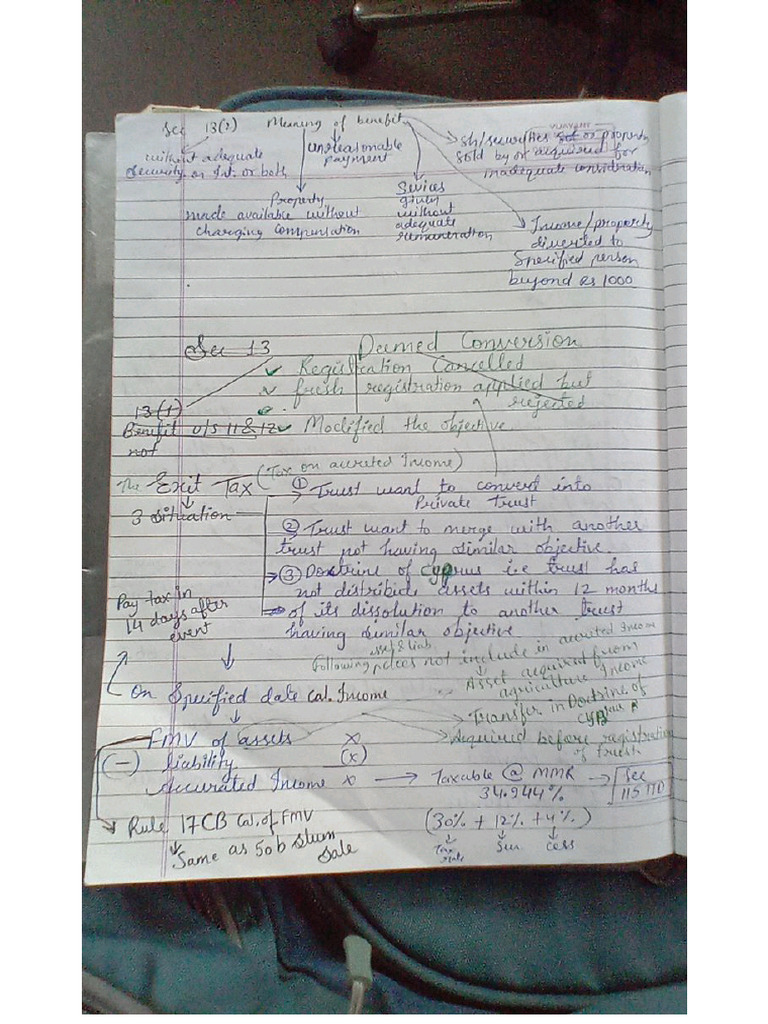 Sec 13(2) Meaning of benefit
without adequate security or Int. or both
unreasonable payment
Sh/securities or property sold by or acquired for inadequate consideration
Property made available without charging compensation
Sevices given without adequate remuneration
Income/property diverted to Specified person beyond Rs 1000
Sec 13 Deemed Conversion
✓ Registration Cancelled
✓ fresh registration applied but rejected
13(1)
Benefit u/s 11 & 12 not
✓ Modified the objective
The Exit Tax (Tax on accreted Income)
3 situation
① Trust want to convert into Private Trust
② Trust want to merge with another
trust not having similar objective.
③ Doctrine of cyprus i.e trust has
not distribute assets within 12 months
of its dissolution to another trust
having similar objective
Pay tax in 14 days after event
asset & liab
Following not include in accreted Income
Asset acquired from agriculture Income
On Specified date cal. Income
Transfer in Doctrine of
Acquired before registration of trust
FMV of assets x
(-) Liability (x)
Accurated Income x → Taxable @ MMR → Sec 115 TD
34.944%
Rule 17CB Cal. of FMV
(30% + 12% + 4%)
Tax rate Sur cess
Same as 50b slum Sale